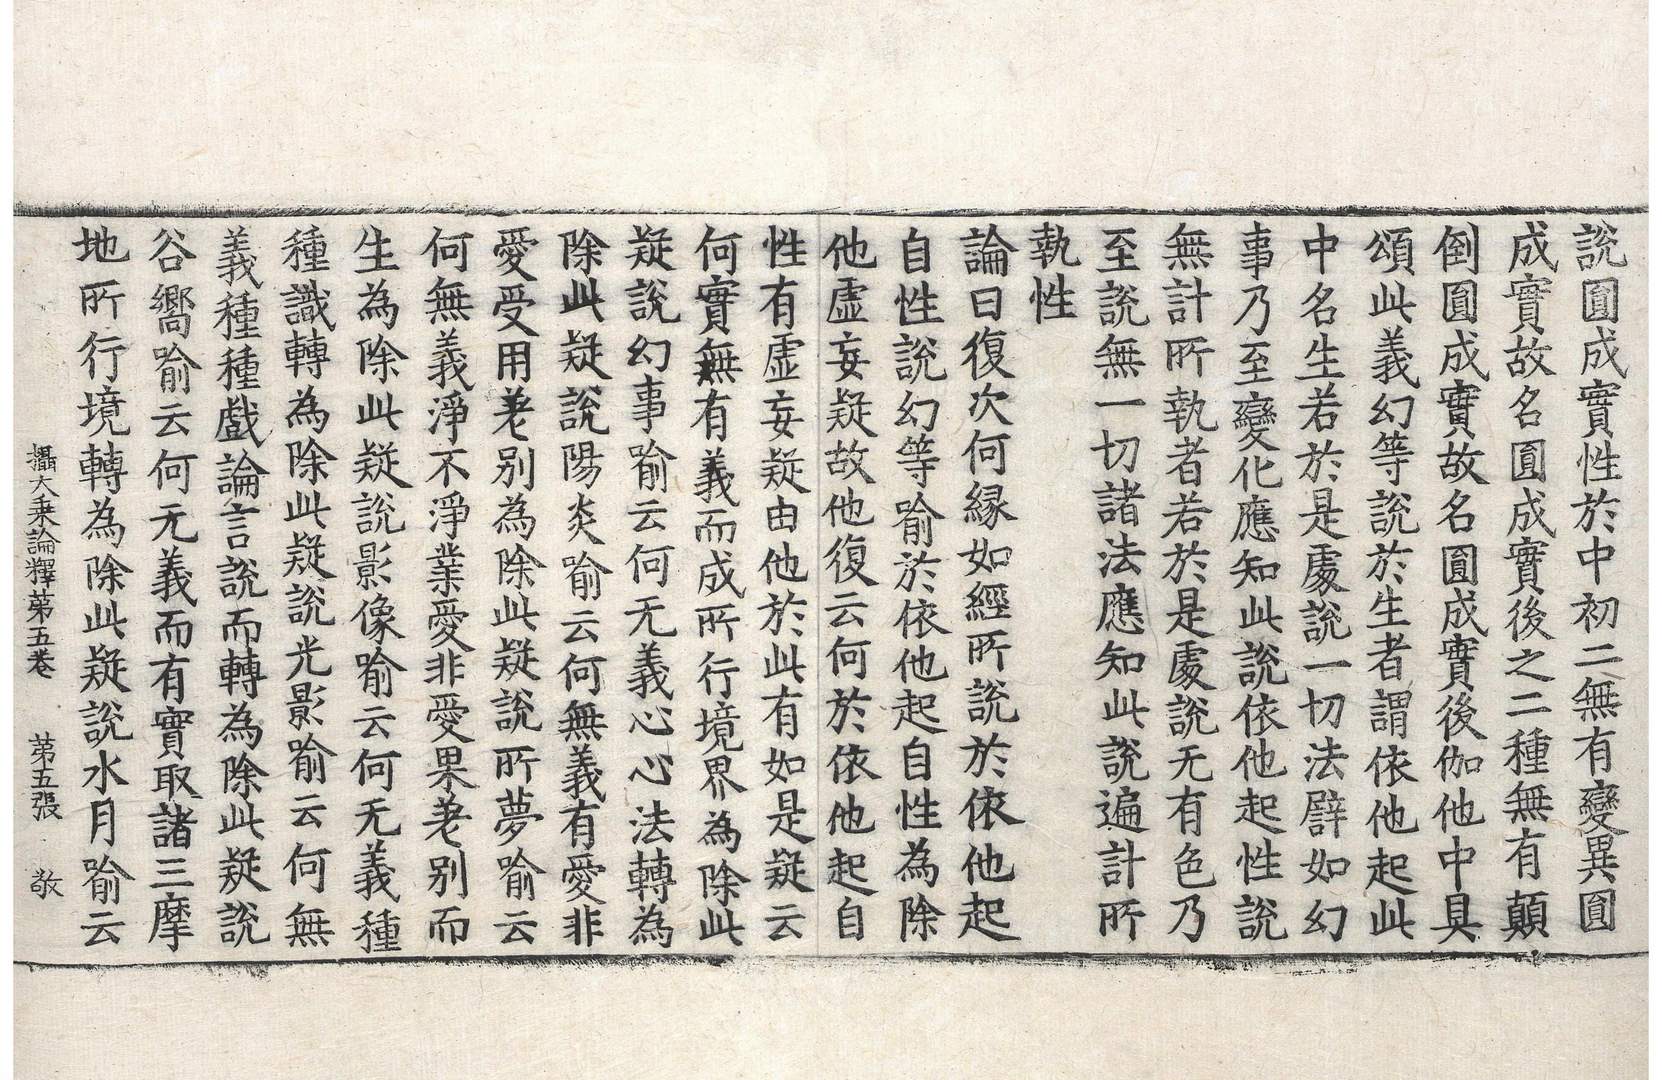 說圎成實性於中初二無有變異圎
成實故名圎成實後之二種無有顛
倒圎成實故名圎成實後伽他中具
頌此義幻等說於生者謂依他起此
中名生若於是處說一切法譬如幻
事乃至變化應知此說依他起性說
無計所執者若於是處說无有色乃
至說無一切諸法應知此說遍計所
執性
論曰復次何縁如經所說於依他起
自性說幻等喻於依他起自性為除
他虛妄疑故他復云何於依他起自
性有虛妄疑由他於此有如是疑云
何實無有義而成所行境界為除此
疑說幻事喻云何无義心心法轉為
除此疑說陽炎喻云何無義有愛非
愛受用差別為除此疑說所夢喻云
何無義淨不淨業愛非愛果差別而
生為除此疑說影像喻云何无義種
種識轉為除此疑說光影喻云何無
義種種戲論言說而轉為除此疑說
谷嚮喻云何无義而有實取諸三摩
地所行境轉為除此疑說水月喻云
攝大乘論釋第五卷 第五張 敬